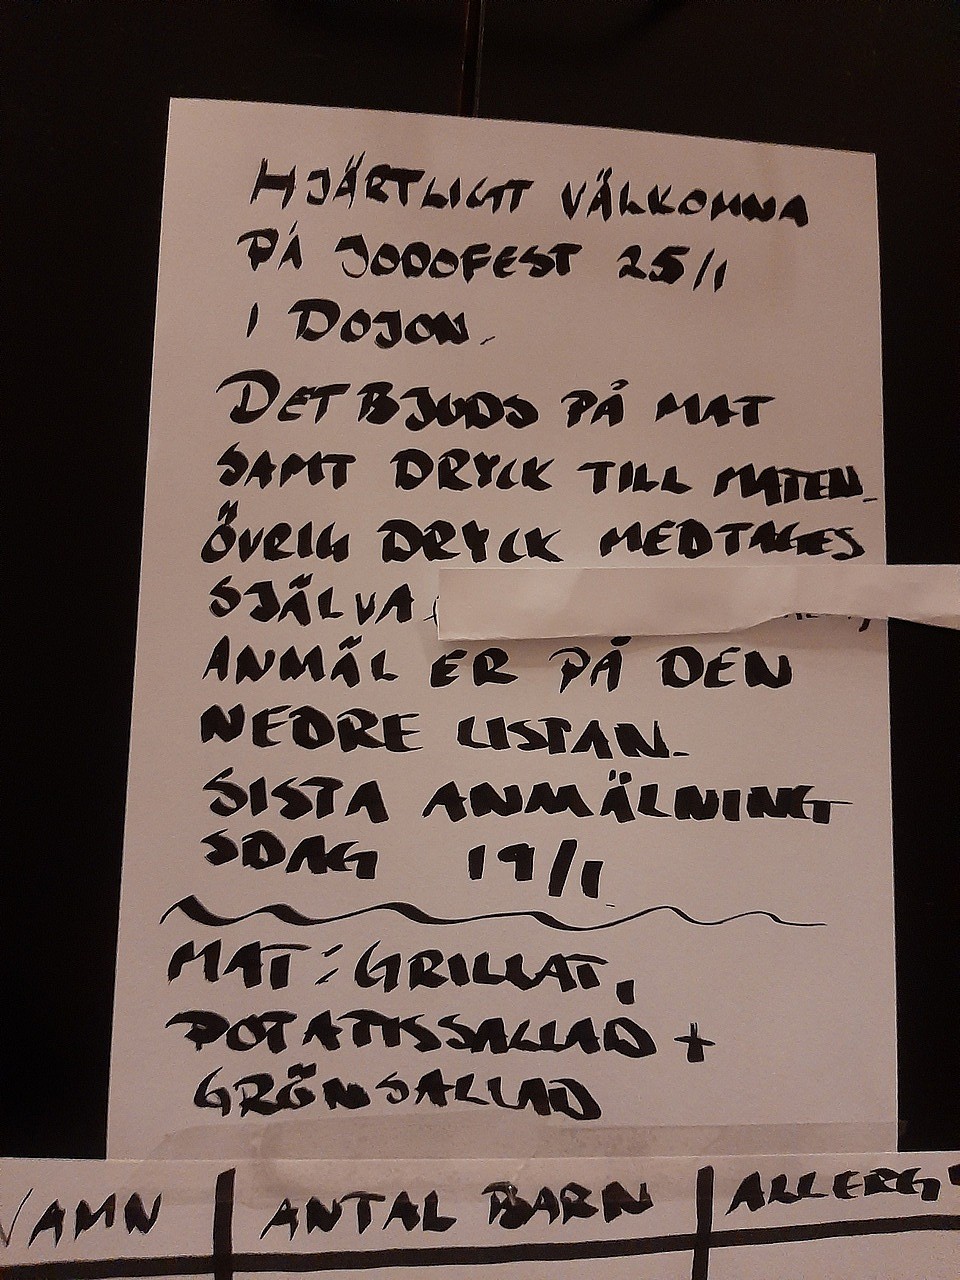 HJÄRTLIGT VÄLKOMNA
PÅ JODOFEST 25/1
I DOJON.
DET BJUDS PÅ MAT
SAMT DRYCK TILL MATEN.
ÖVRIG DRYCK MEDTAGES
SJÄLVA
ANMÄL ER PÅ DEN
NEDRE LISTAN.
SISTA ANMÄLNING
SDAG 19/1.
MAT: GRILLAT,
POTATISSALLAD +
GRÖNSALLAD
NAMN | ANTAL BARN | ALLERGI